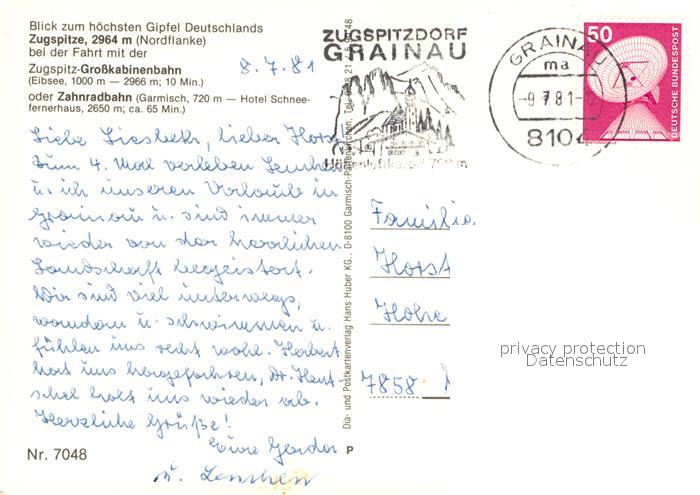 Blick zum höchsten Gipfel Deutschlands
Zugspitze, 2964 m (Nordflanke)
bei der Fahrt mit der
Zugspitz-Großkabinenbahn
(Eibsee, 1000 m — 2966 m; 10 Min.)
oder Zahnradbahn (Garmisch, 720 m — Hotel Schnee-
fernerhaus, 2650 m; ca. 65 Min.)
8.7.81
Liebe Liesbeth, lieber Horst
Zum 4. Mal verleben Lenchen
u. ich unseren Urlaub in
Grainau u. sind immer
wieder von der herrlichen
Landschaft begeistert.
Wir sind viel unterwegs,
wandern u. schwimmen u.
fühlen uns recht wohl. Herbert
hat uns hergefahren, Dr. Hent-
schel holt uns wieder ab.
Herzliche Grüße!
Eure Gerda
u. Lenchen
Nr. 7048
P
Dia- und Postkartenverlag Hans Huber KG., D-8100 Garmisch-Partenkirchen,
ZUGSPITZDORF
GRAINAU
750 m
GRAINAU
ma
-9.7.81-
8104
50
DEUTSCHE BUNDESPOST
Familie
Horst
Hohe
7858
privacy protection
Datenschutz